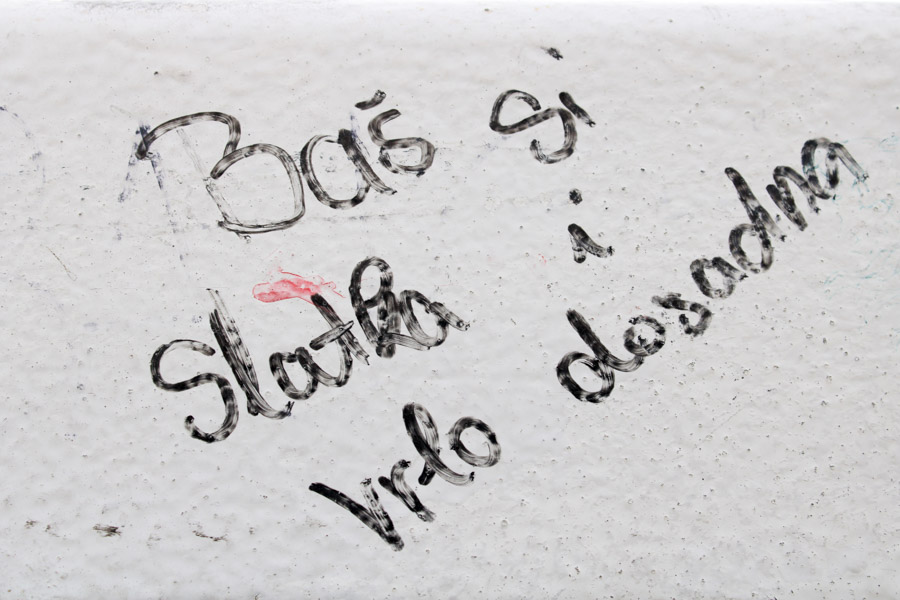 Baš si
Slatka i
Vrlo dosadna